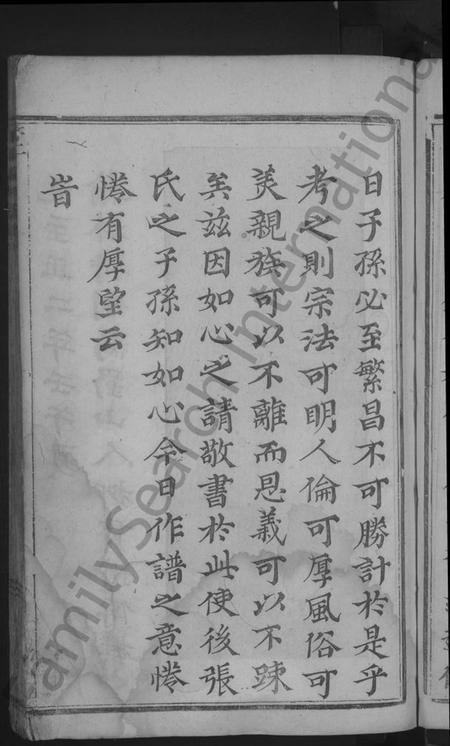 日子孫必至繁昌不可勝計於是乎
考之則宗法可明人倫可厚風俗可
美親族可以不離而恩義可以不踈
矣茲因如心之請敬書於此使後張
氏之子孫知如心今日作譜之意惓
惓有厚望云
旹
FamilySearch International